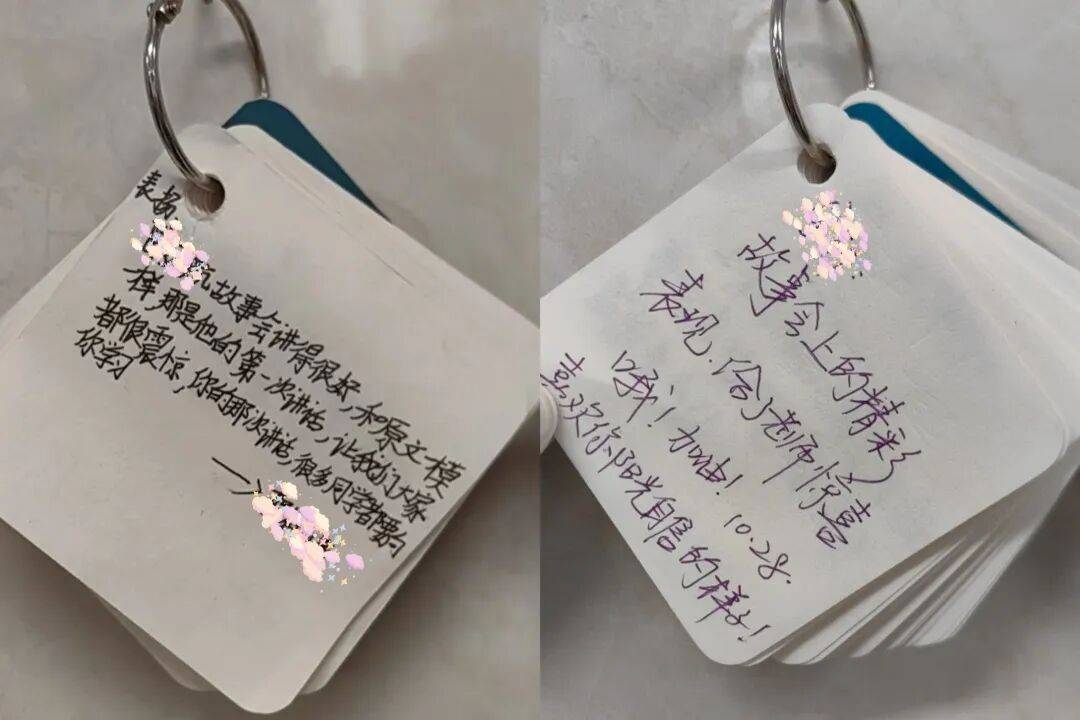 表扬
航故事会讲得很好,和原文一模
样,那是他的第一次讲话,让我们大家
都很震惊,你的那次讲话,很多同学都要向
你学习
故事会上的精彩
表现,给了老师惊喜
哦!加油!10.28.
喜欢你阳光自信的样子!